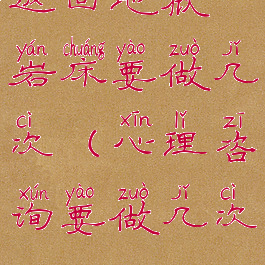 返回地狱
yán chuáng yào zuò jǐ
岩床要做几
cì xīn lǐ zī
次（心理咨
xún yào zuò jǐ cì
询要做几次